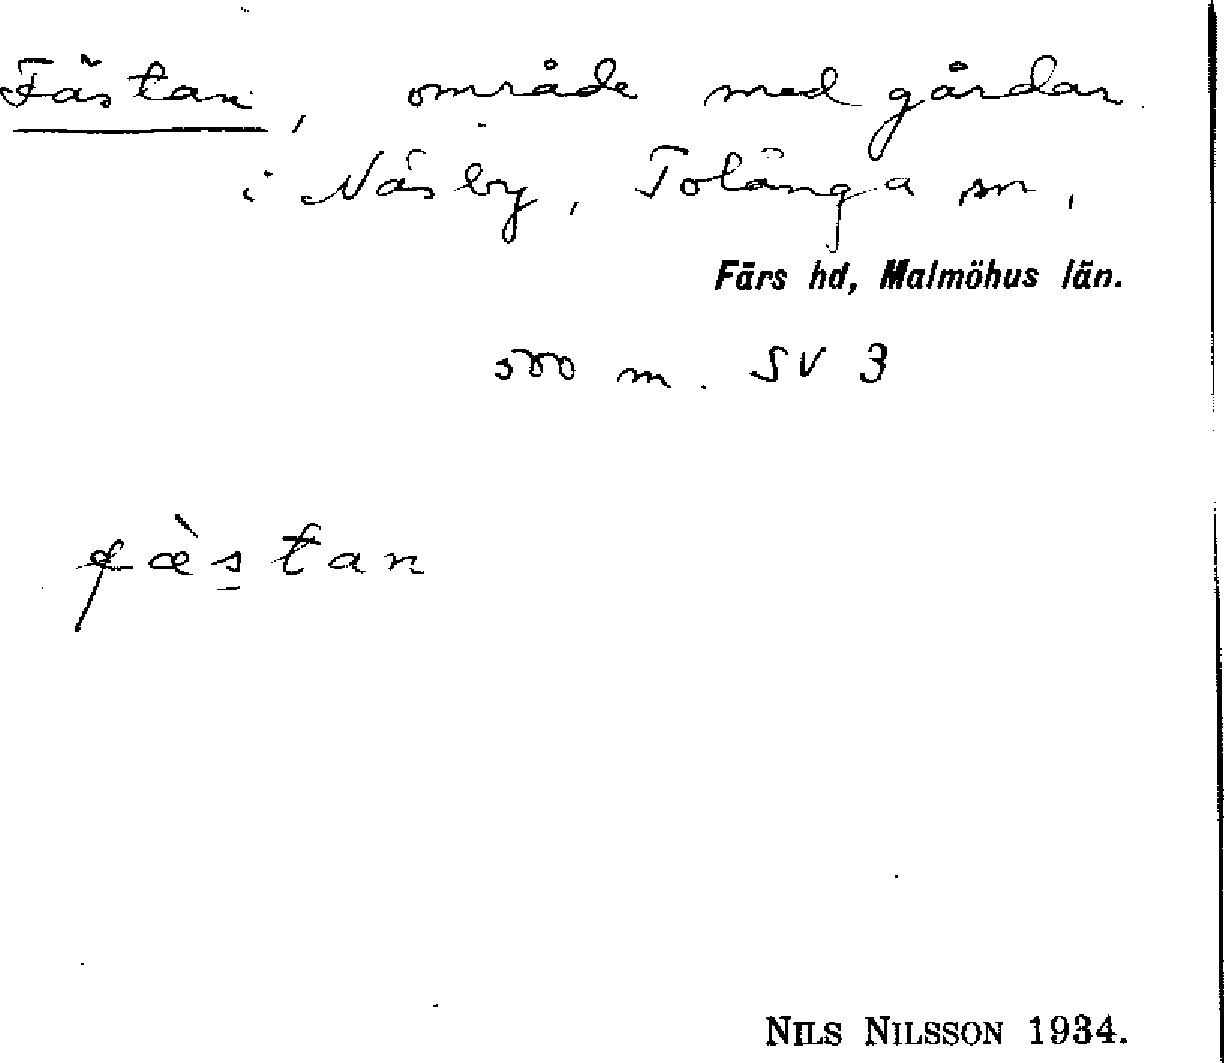 Fästan, område med gårdar
i Näsby, Tolånga sn,
Färs hd, Malmöhus län.
500 m. SV 3
fæ̀s̱tan
NILS NILSSON 1934.